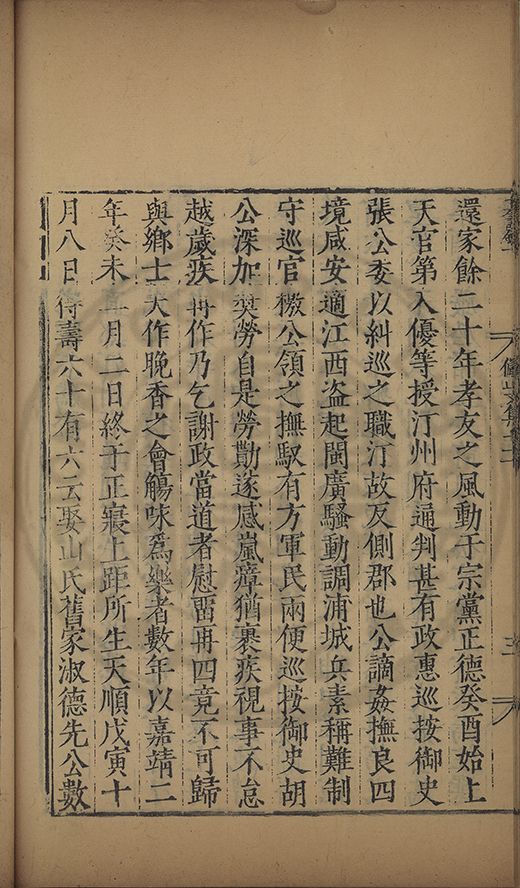 還家餘二十年孝友之風動于宗黨正德癸酉始上
天官第入優等授汀州府通判甚有政惠巡按御史
張公委以糾巡之職汀故反側郡也公謫姦撫良四
境咸安適江西盗起閩廣騷動調浦城兵素稱難制
守巡官檄公領之撫馭有方軍民兩便巡按御史胡
公深加奨勞自是勞勩遂感嵐瘴猶裹疾視事不怠
越歲疾再作乃乞謝政當道者慰畱再四竟不可歸
與鄉士夫作晚香之會觴咏爲樂者數年以嘉靖二
年癸未 月二日終于正寢上距所生天順戊寅十
月八日得壽六十有六云娶山氏舊家淑德先公數